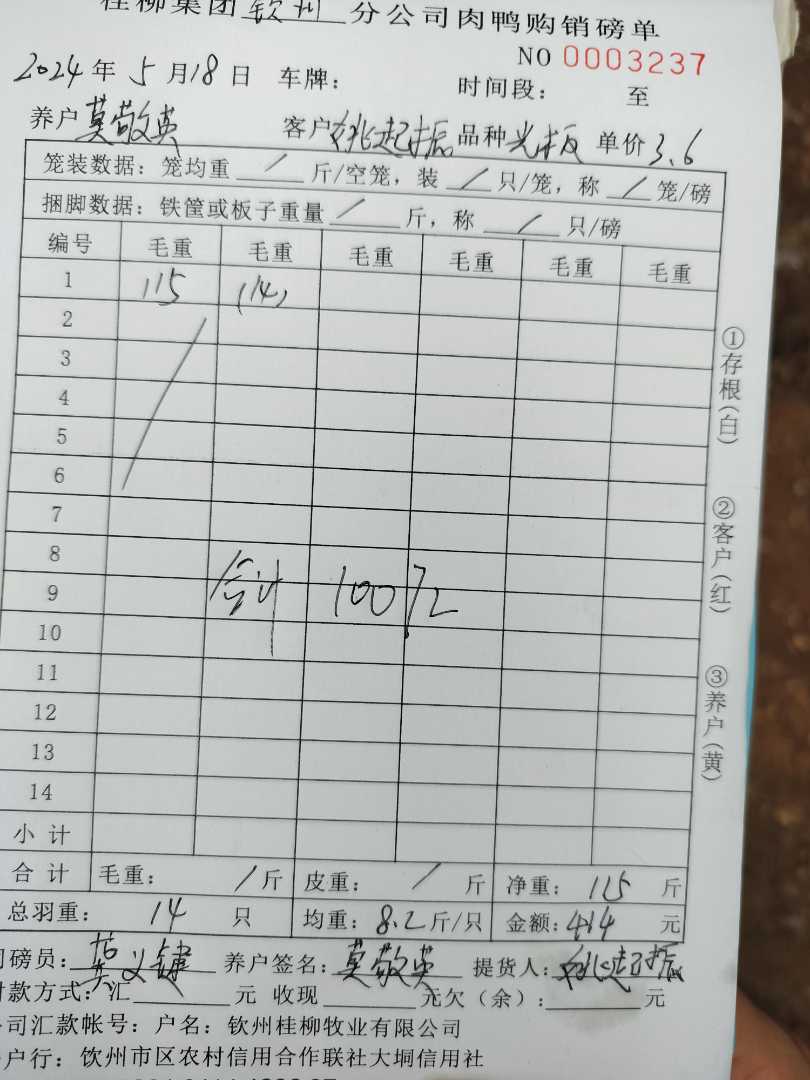 桂柳集团钦州分公司肉鸭购销磅单
NO 0003237
2024年5月18日 车牌： 时间段： 至
养户莫敬英 客户姚起振 品种光板 单价3.6
笼装数据：笼均重 / 斤/空笼，装 / 只/笼，称 / 笼/磅
捆脚数据：铁筐或板子重量 / 斤，称 / 只/磅
编号 毛重 毛重 毛重 毛重 毛重 毛重
1 115 (14)
2
3
4
5
6
7
8
合计 100元
9
10
11
12
13
14
小计
合计 毛重： / 斤 皮重： / 斤 净重：115 斤
总羽重：14 只 均重：8.2斤/只 金额：414 元
磅员：莫义健 养户签名：莫敬英 提货人：姚起振
付款方式：汇 元 收现 元欠（余）： 元
公司汇款帐号：户名：钦州桂柳牧业有限公司
户行：钦州市区农村信用合作联社大垌信用社
①存根（白）
②客户（红）
③养户（黄）